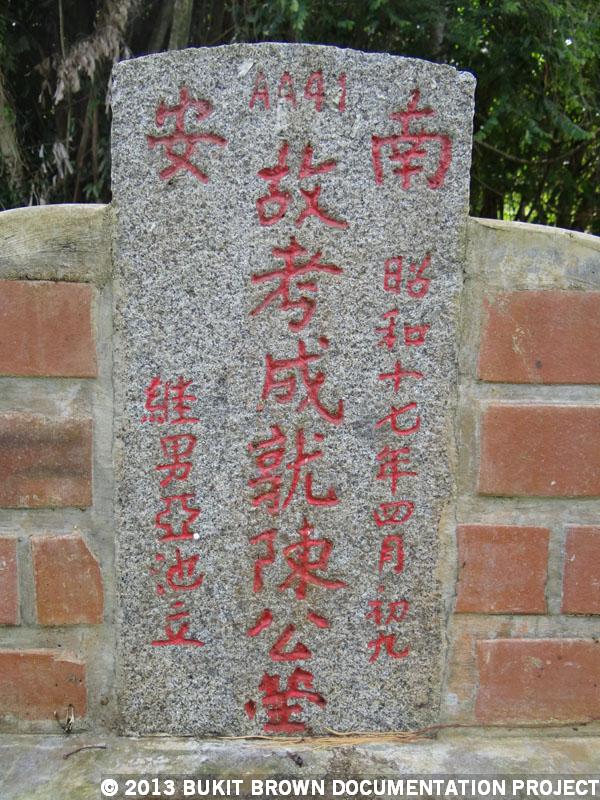 AA41
南安
昭和十七年四月初九
故考成就陳公塋
維男亞池立
© 2013 BUKIT BROWN DOCUMENTATION PROJECT